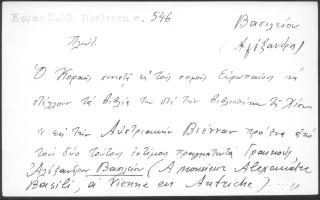 Κοραη Συλλ. Προλεγομ σ. 546
Βασιλείου
(Αλέξανδρ.)
Πλούτ.
Ὁ Κοραῆς συνιστᾷ εἰς τοὺς σοφοὺς Εὐρωπαίους νὰ
στέλλουν τὰ βιβλία των διὰ τὴν βιβλιοθήκην τῆς Χίου
« εἰς τὴν Αὐστριακὴν Βιένναν πρὸς ἕνα ἀπὸ
τοὺς δύο τούτους ἐντίμους πραγματευτὰς Γραικοὺς
Ἀλέξανδρον Βασιλείου (A monsieur Alexandre
Basili, à Vienne en Autriche) .... »